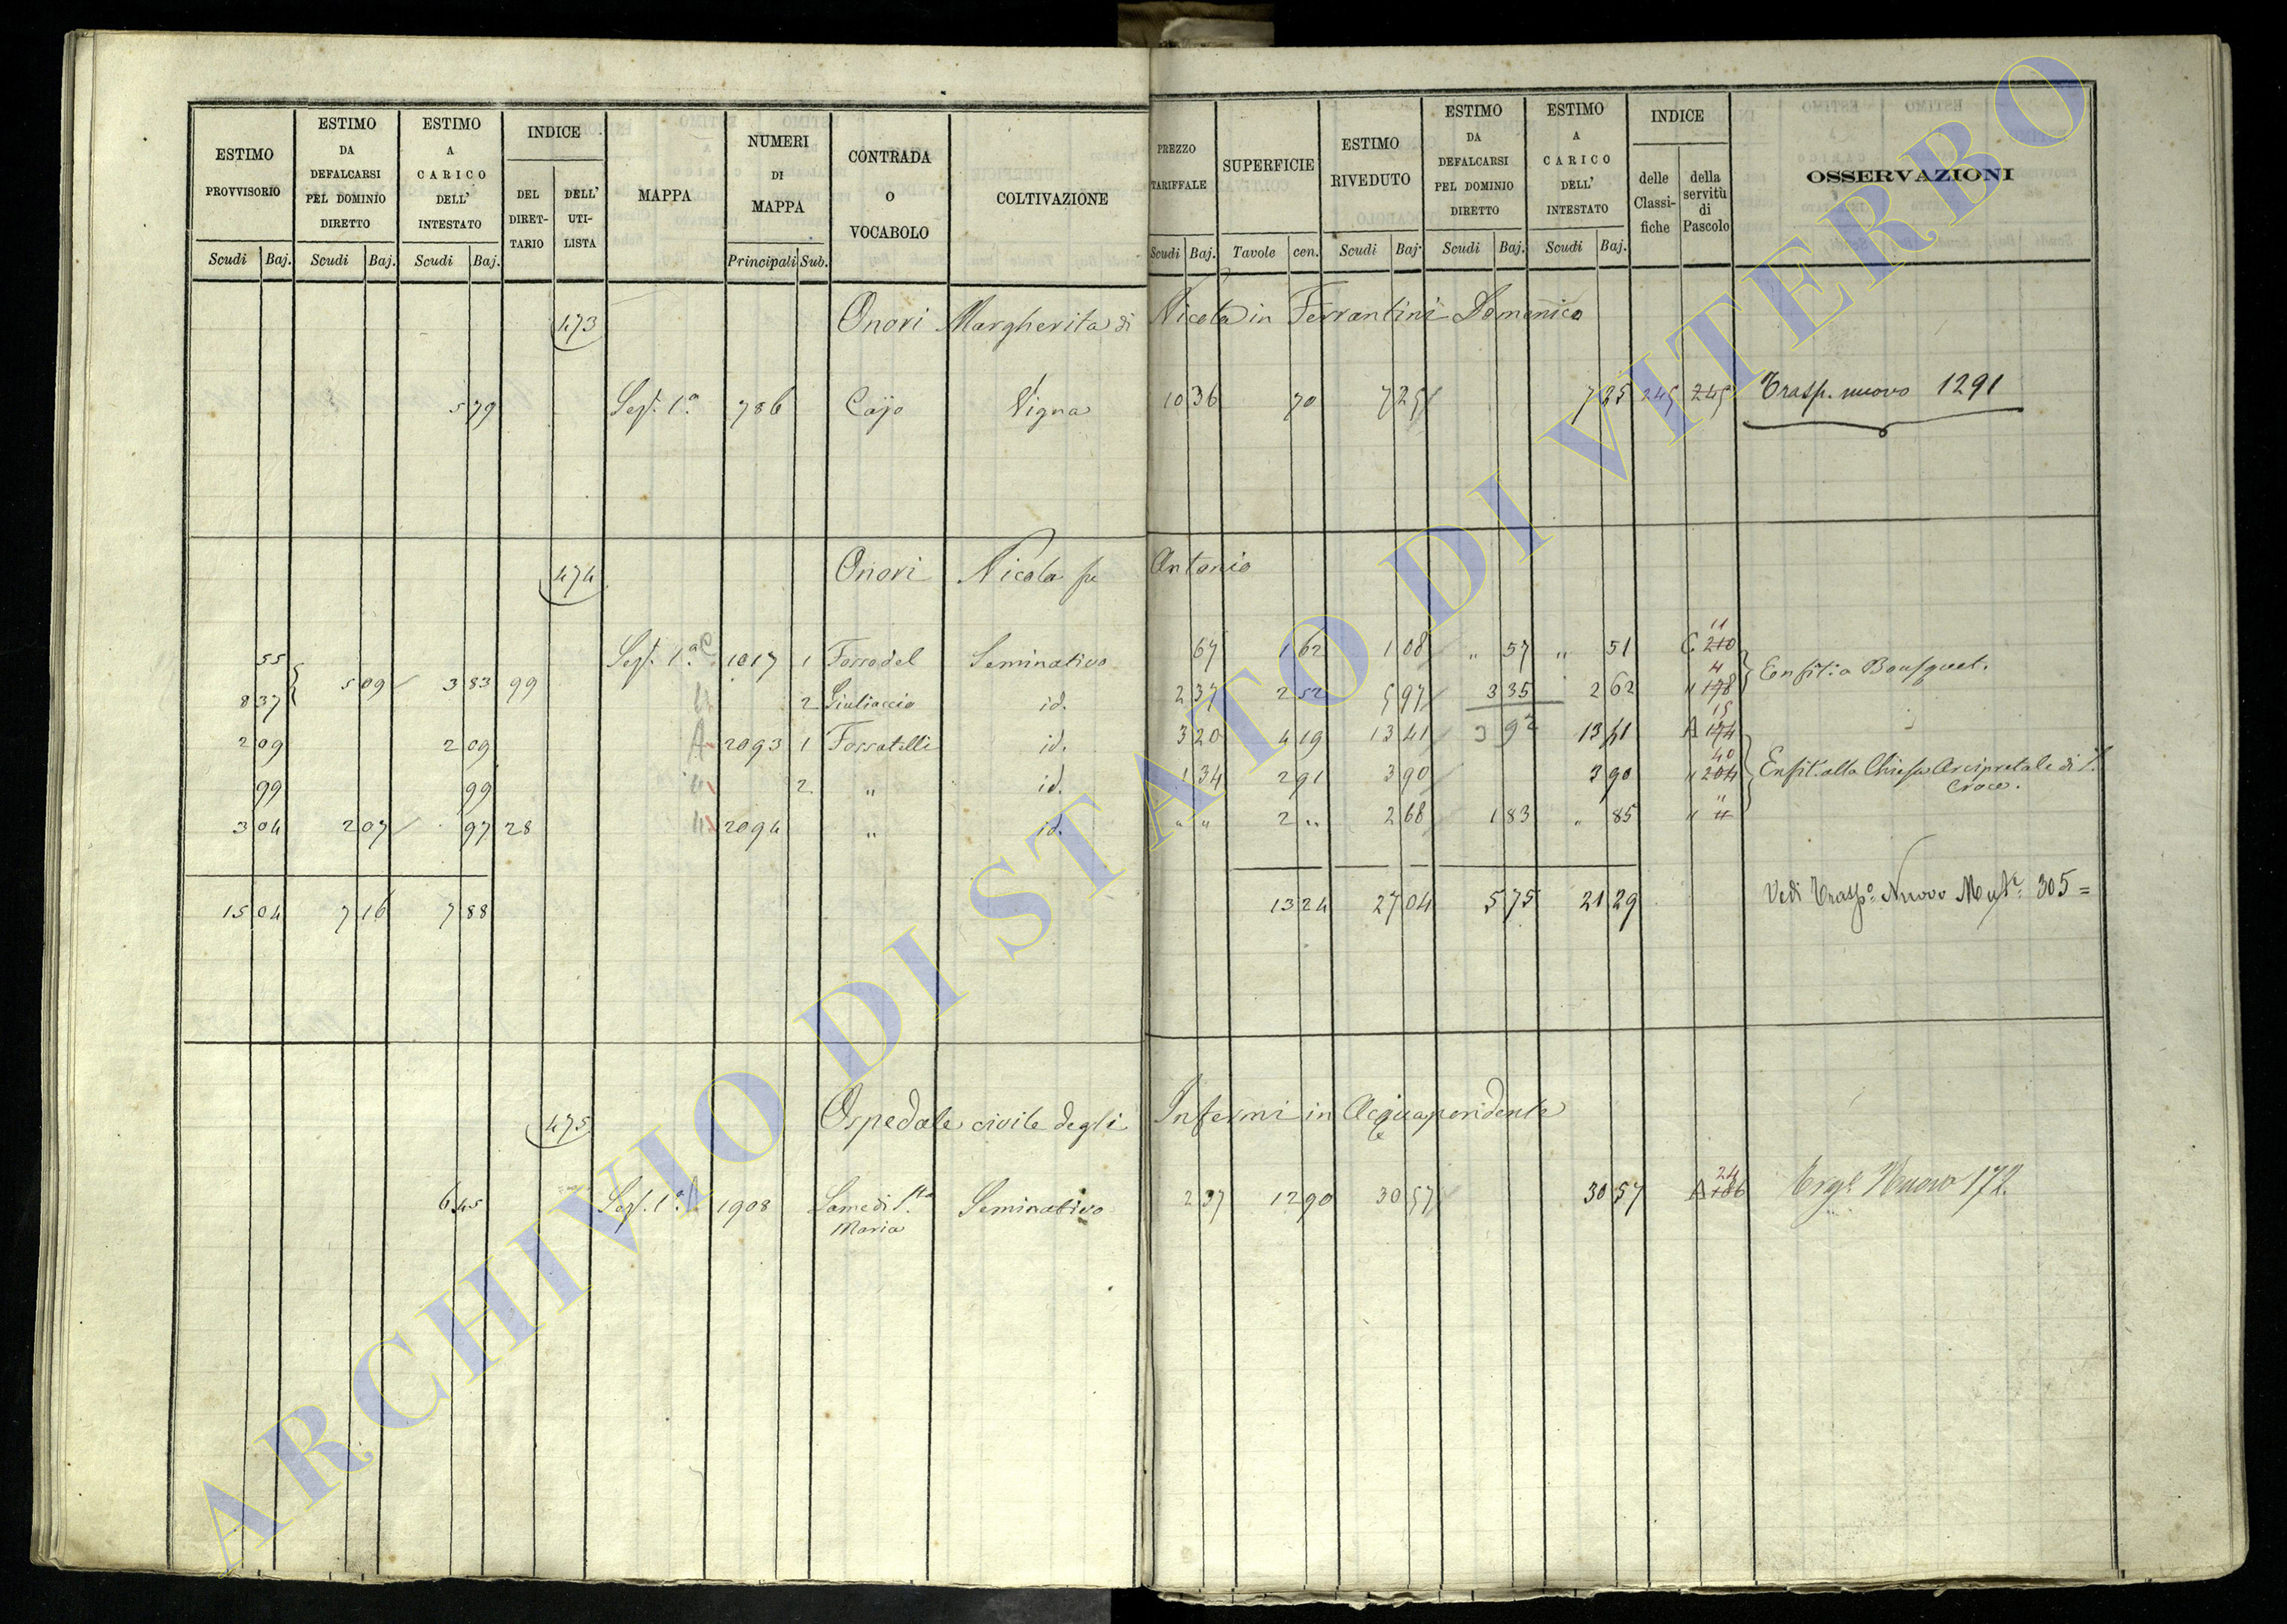 ESTIMO PROVVISORIO | ESTIMO DA DEFALCARSI PEL DOMINIO DIRETTO | ESTIMO A CARICO DELL' INTESTATO | INDICE DEL DIRET-TARIO | DELL' UTI-LISTA | MAPPA | NUMERI DI MAPPA | CONTRADA O VOCABOLO | COLTIVAZIONE | PREZZO TARIFFALE | SUPERFICIE | ESTIMO RIVEDUTO | ESTIMO DA DEFALCARSI PEL DOMINIO DIRETTO | ESTIMO A CARICO DELL' INTESTATO | INDICE delle Classi-fiche | della servitù di Pascolo | OSSERVAZIONI
Scudi Baj. Scudi Baj. Scudi Baj. Principali Sub. Scudi Baj. Tavole cen. Scudi Baj. Scudi Baj. Scudi Baj.
473 Onori Margherita di Nicola in Ferrantini Domenico
5 79 Sez. 1a 786 Cajo Vigna 10 36 70 7 25 7 25 245 245 Trasp. nuovo 1291
474 Onori Nicola fu Antonio
55 Sez. 1a C 1017 1 Fosso del Seminativo 67 1 62 1 08 " 57 " 51 C 210 11
8 37 5 09 3 83 99 2 Giuliaccio id. 2 37 2 52 5 97 3 35 2 62 " 178 4 Enfit. a Bousquet.
2 09 2 09 A 2093 1 Fossatelli id. 3 20 4 19 13 41 3 92 13 41 A 174 15
99 99 " 2 " id. 1 34 2 91 3 90 3 90 " 204 40 Enfit. alla Chiesa Arcipretale di S. Croce.
3 04 2 07 97 28 " 2094 " id. " " 2 " 2 68 1 83 " 85 " "
15 04 7 16 7 88 13 24 27 04 5 75 21 29 Vedi Trasp. Nuovo 305 =
475 Ospedale civile degli Infermi in Acquapendente
6 45 Sez. 1a A 1908 Lame di Sta Maria Seminativo 2 37 12 90 30 57 30 57 A 186 24 Nuovo 172.
ARCHIVIO DI STATO DI VITERBO